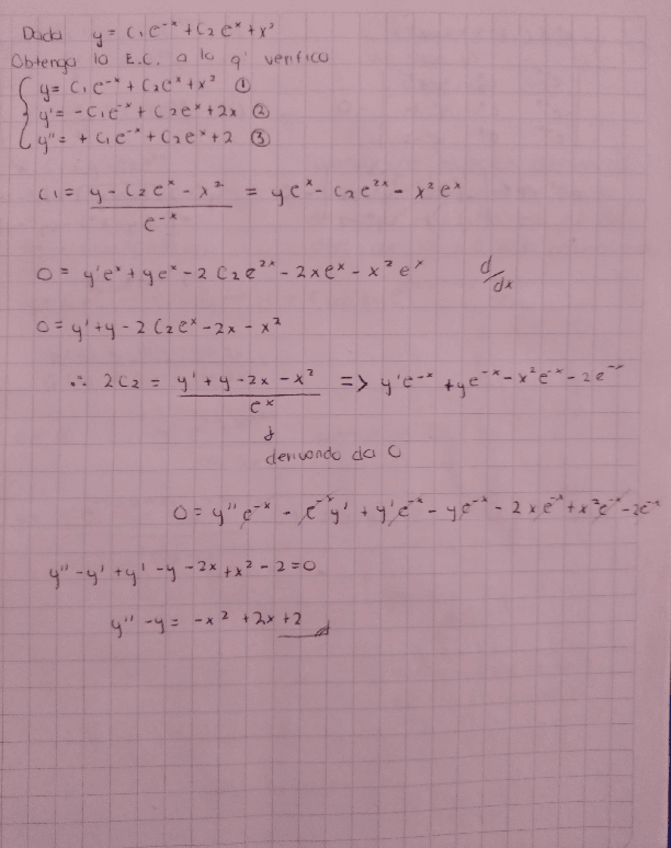 Dada y = C₁e⁻ˣ + C₂eˣ + x²
Obtenga la E.C. a la q' verifica
{ y = C₁e⁻ˣ + C₂eˣ + x² ①
y' = -C₁e⁻ˣ + C₂eˣ + 2x ②
y'' = + C₁e⁻ˣ + C₂eˣ + 2 ③
C₁ = (y - C₂eˣ - x²) / e⁻ˣ = yeˣ - C₂e²ˣ - x²eˣ
0 = y'eˣ + yeˣ - 2C₂e²ˣ - 2xeˣ - x²eˣ d/dx
0 = y' + y - 2C₂eˣ - 2x - x²
∴ 2C₂ = (y' + y - 2x - x²) / eˣ => y'e⁻ˣ + ye⁻ˣ - x²e⁻ˣ - 2e⁻ˣ
derivando da 0
0 = y''e⁻ˣ - e⁻ˣy' + y'e⁻ˣ - ye⁻ˣ - 2xe⁻ˣ + x²e⁻ˣ - 2e⁻ˣ
y'' - y' + y' - y - 2x + x² - 2 = 0
y'' - y = -x² + 2x + 2